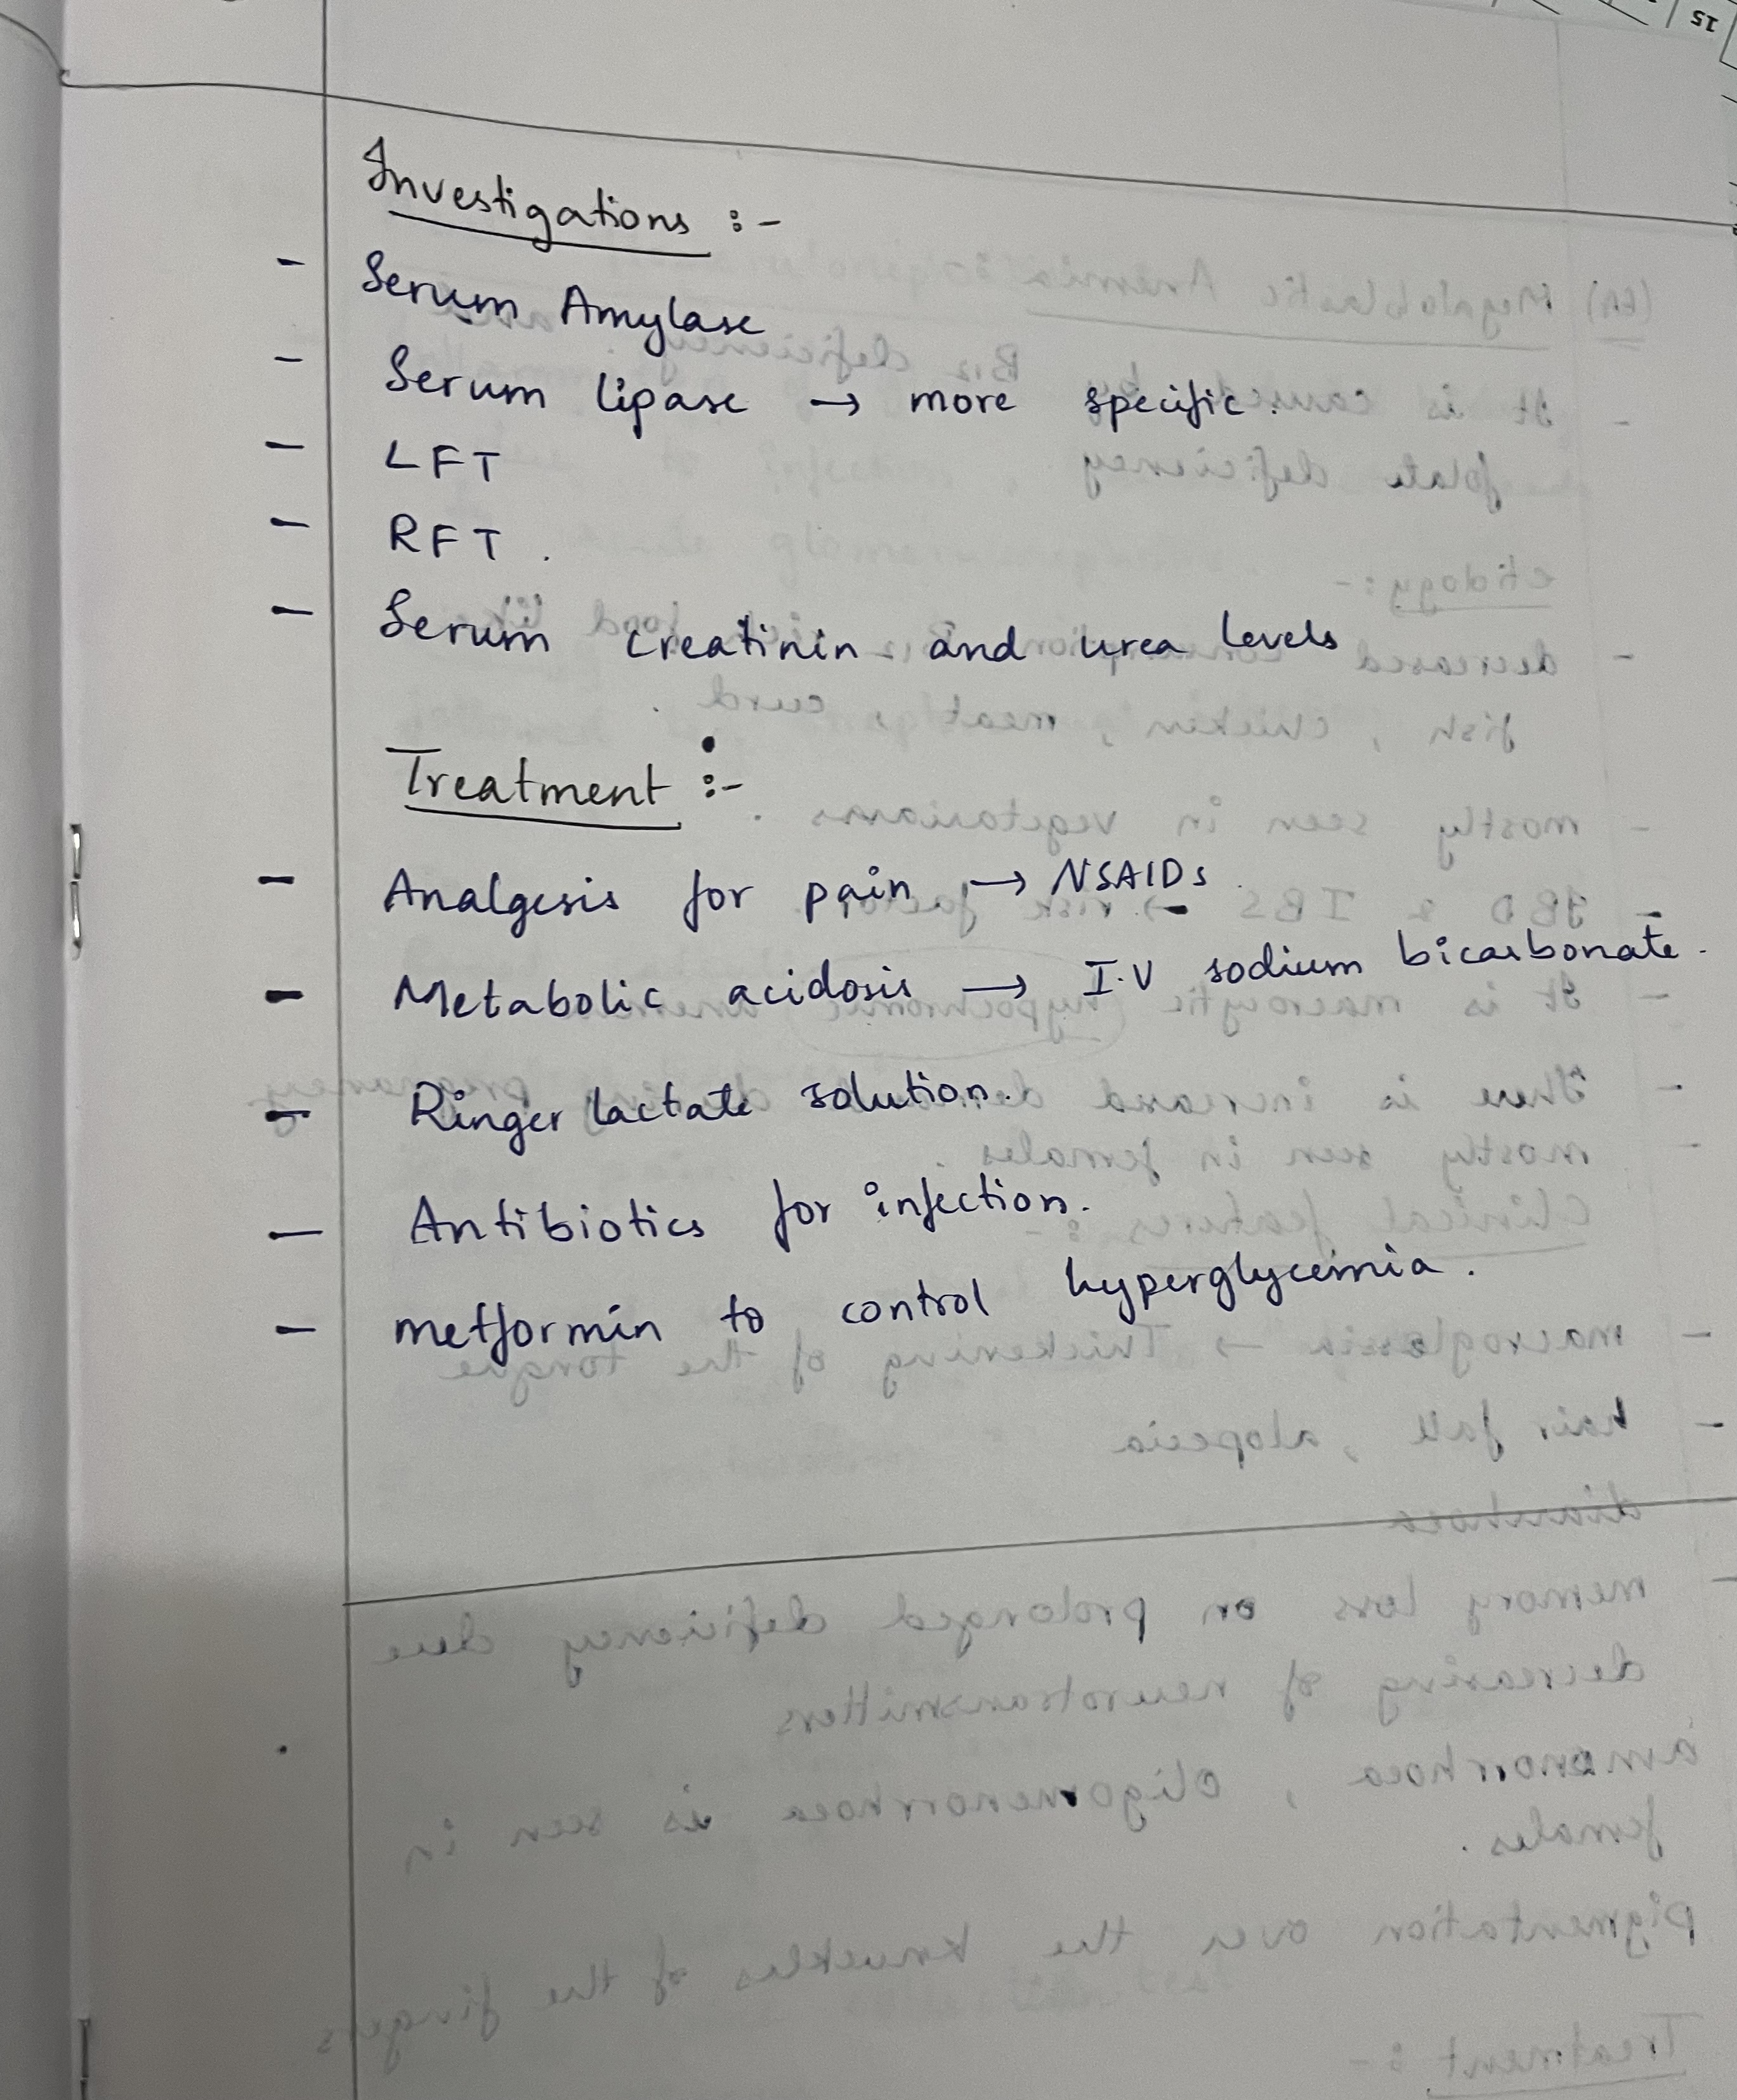 15
Investigations :-
- Serum Amylase
- Serum lipase → more specific.
- LFT
- RFT.
- Serum creatinin and urea levels
Treatment :-
- Analgesis for pain → NSAIDs.
- Metabolic acidosis → I.V sodium bicarbonate.
- Ringer lactate solution.
- Antibiotics for infection.
- metformin to control hyperglycemia.